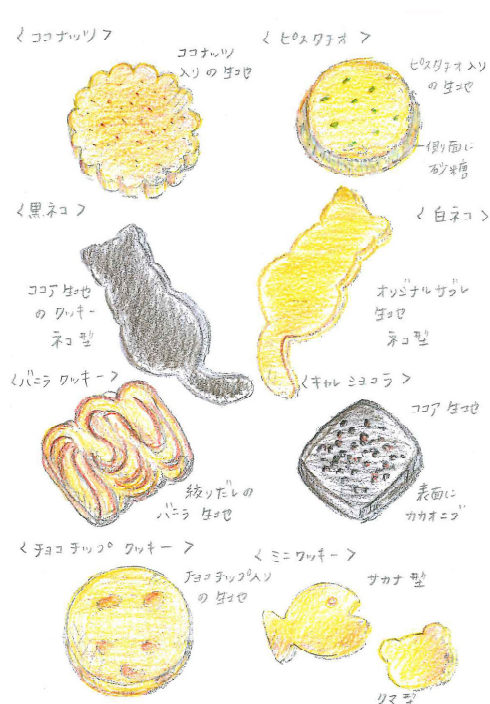 <ココナッツ>
ココナッツ
入りの生地
<ピスタチオ>
ピスタチオ入り
の生地
側面に
砂糖
<黒ネコ>
ココア生地
のクッキー
ネコ型
<白ネコ>
オリジナルサブレ
生地
ネコ型
<バニラクッキー>
絞りだしの
バニラ生地
<キャレショコラ>
ココア生地
表面に
カカオニブ
<チョコチップクッキー>
チョコチップ入り
の生地
<ミニクッキー>
サカナ型
クマ型